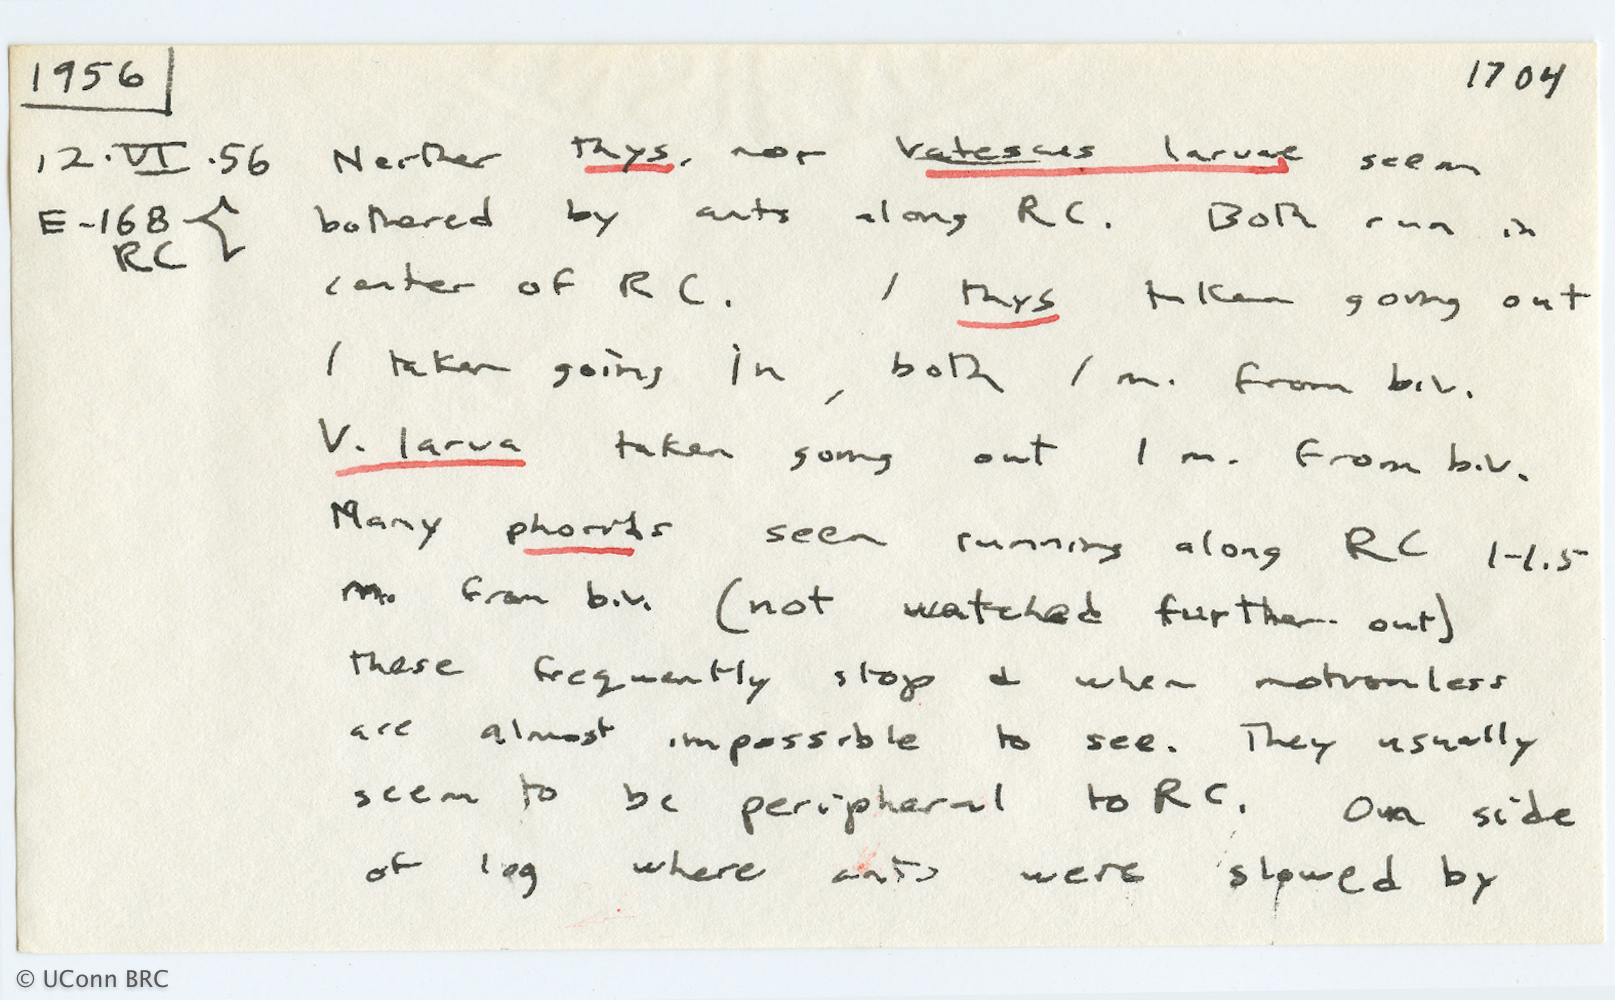 1956
1704
12.VI.56 Neither thys. nor Vatesus larvae seem
E-168 RC bothered by ants along RC. Both run in
center of RC. 1 thys taken going out
1 taken going in, both 1 m. from biv.
V. larva taken going out 1 m. from biv.
Many phorids seen running along RC 1-1.5
m. from biv. (not watched further out)
these frequently stop & when motionless
are almost impossible to see. They usually
seem to be peripheral to RC. On side
of log where ants were slowed by
© UConn BRC